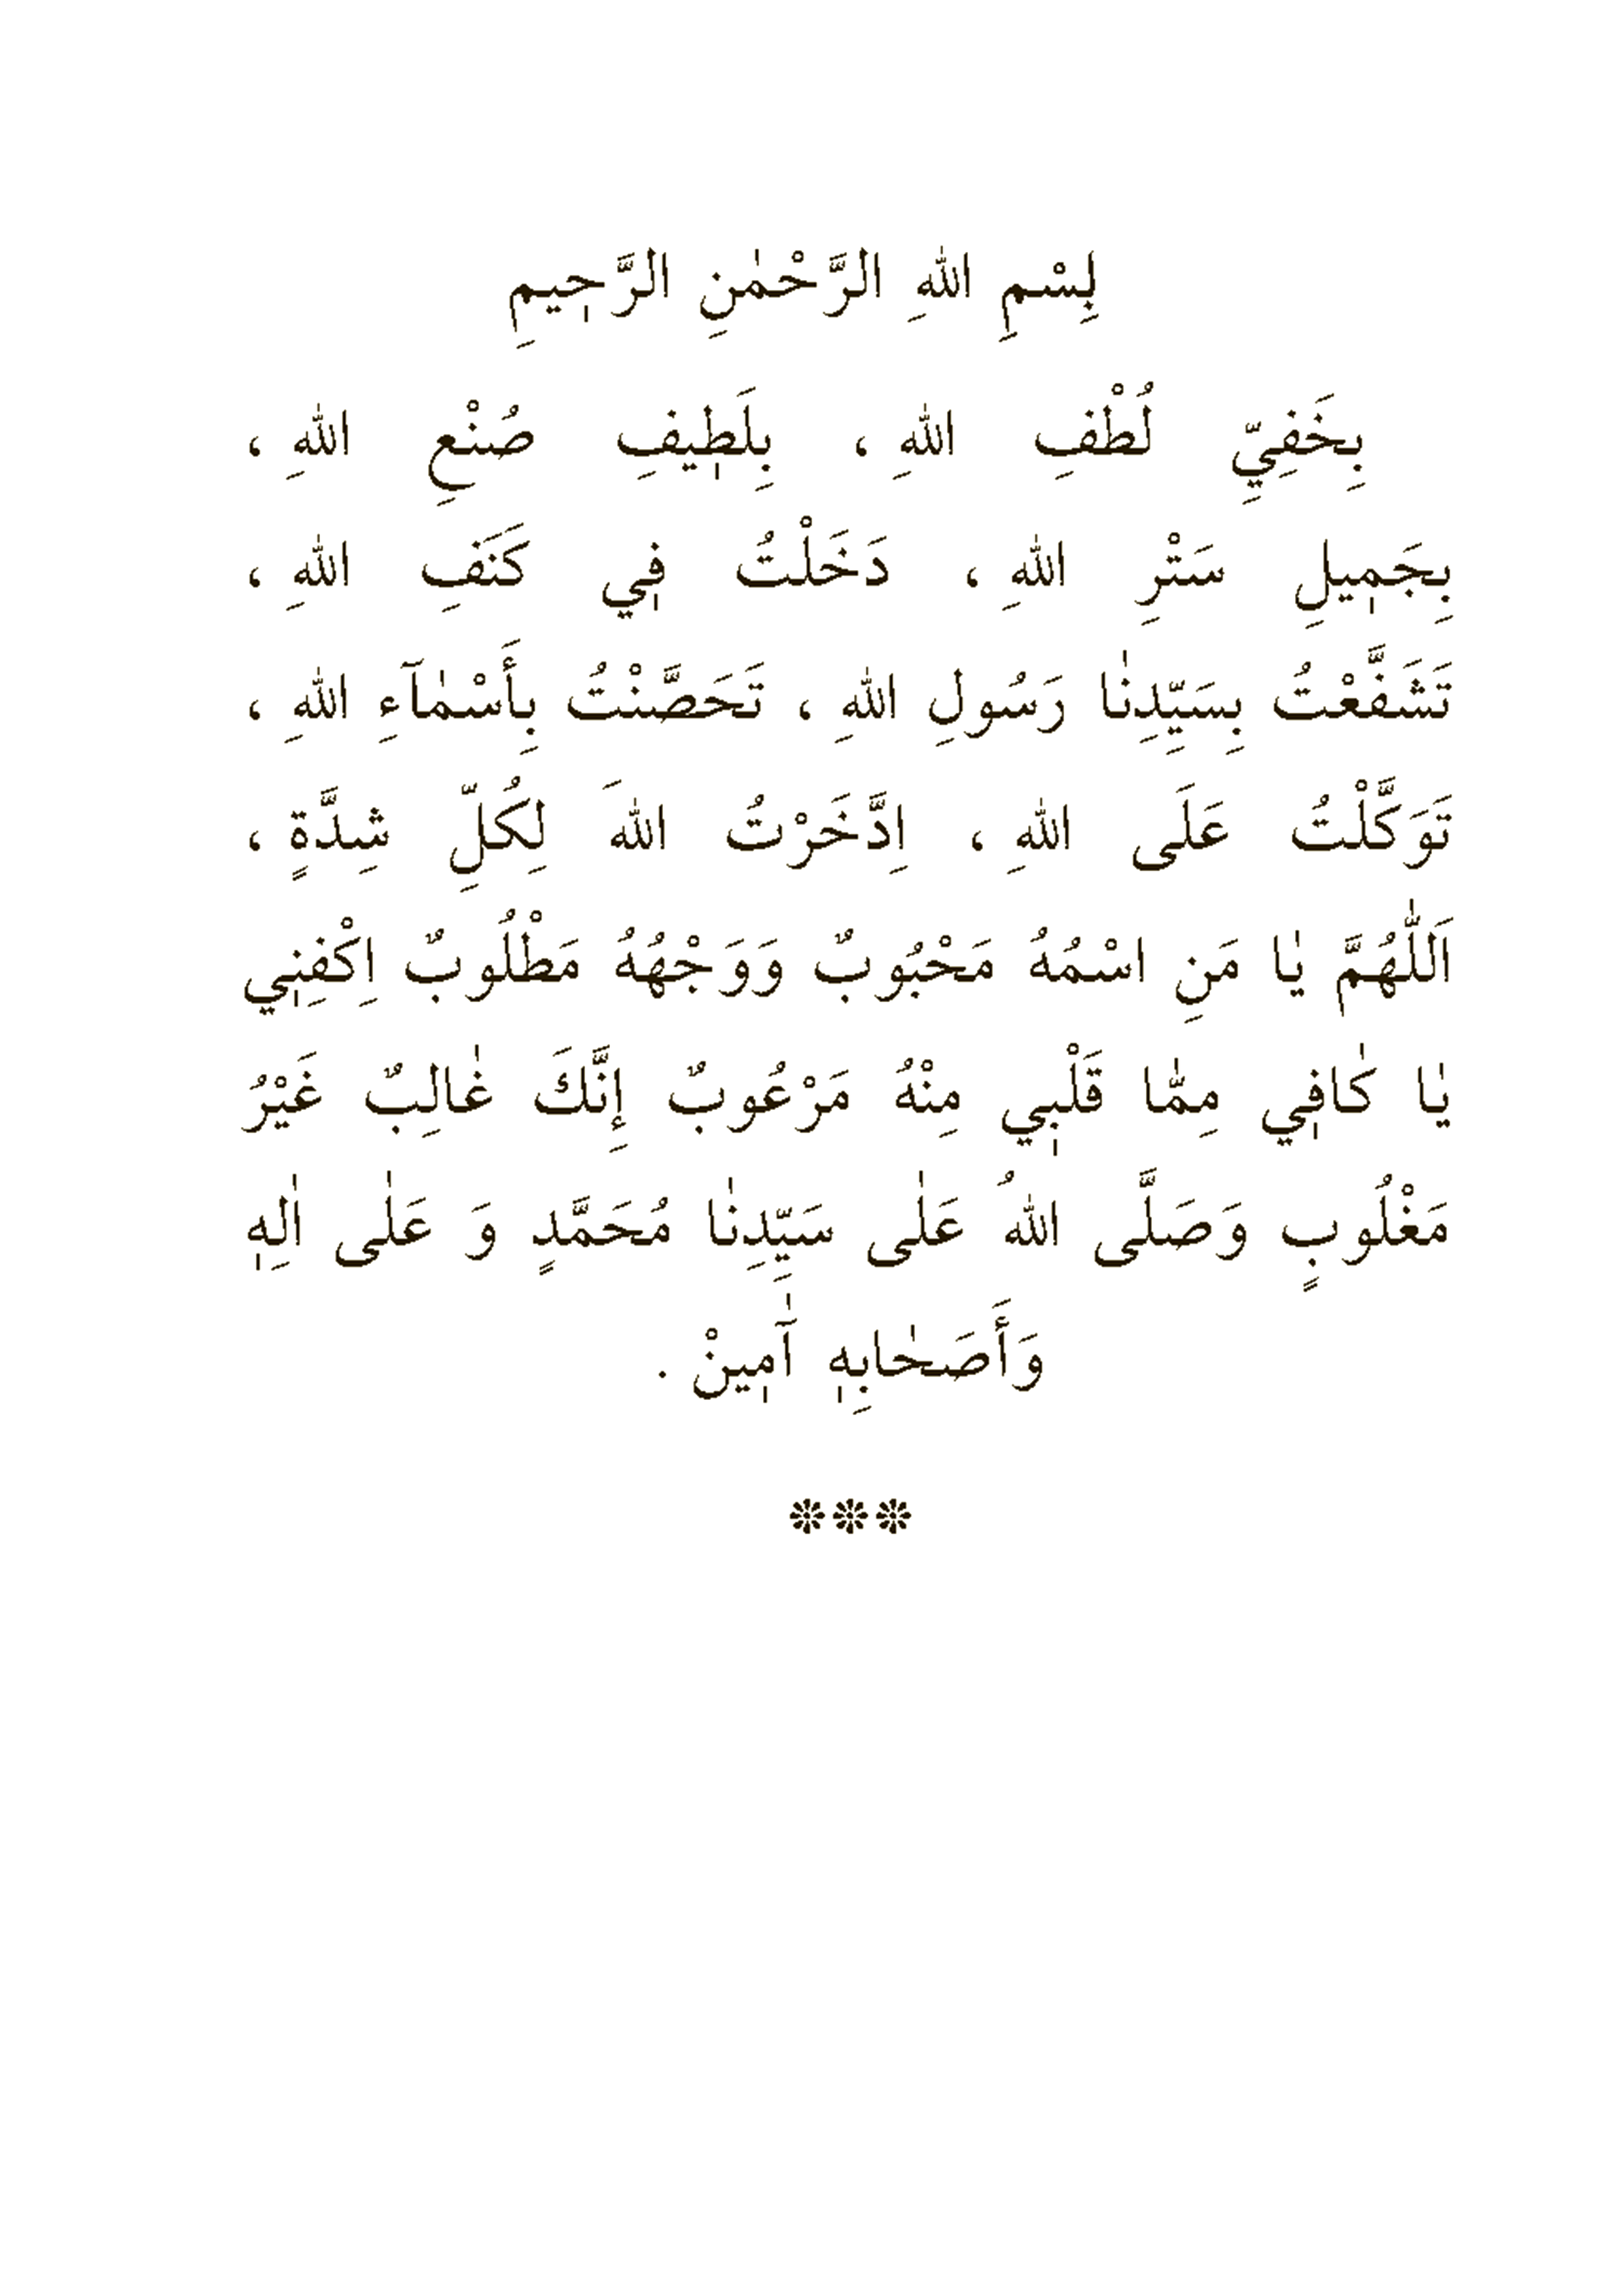 بِسْمِ اللهِ الرَّحْمٰنِ الرَّحٖيمِ
بِخَفِيِّ لُطْفِ اللهِ ، بِلَطٖيفِ صُنْعِ اللهِ ،
بِجَمٖيلِ سَتْرِ اللهِ ، دَخَلْتُ فٖي كَنَفِ اللهِ ،
تَشَفَّعْتُ بِسَيِّدِنٰا رَسُولِ اللهِ ، تَحَصَّنْتُ بِأَسْمٰآءِ اللهِ ،
تَوَكَّلْتُ عَلَى اللهِ ، اِدَّخَرْتُ اللهَ لِكُلِّ شِدَّةٍ ،
اَللّٰهُمَّ يٰا مَنِ اسْمُهُ مَحْبُوبٌ وَوَجْهُهُ مَطْلُوبٌ اِكْفِنٖي
يٰا كٰافٖي مِمّٰا قَلْبٖي مِنْهُ مَرْعُوبٌ إِنَّكَ غٰالِبٌ غَيْرُ
مَغْلُوبٍ وَصَلَّى اللهُ عَلٰى سَيِّدِنٰا مُحَمَّدٍ وَ عَلٰى اٰلِهٖ
وَأَصَحٰابِهٖ اٰۤمٖينْ .
❊❊❊